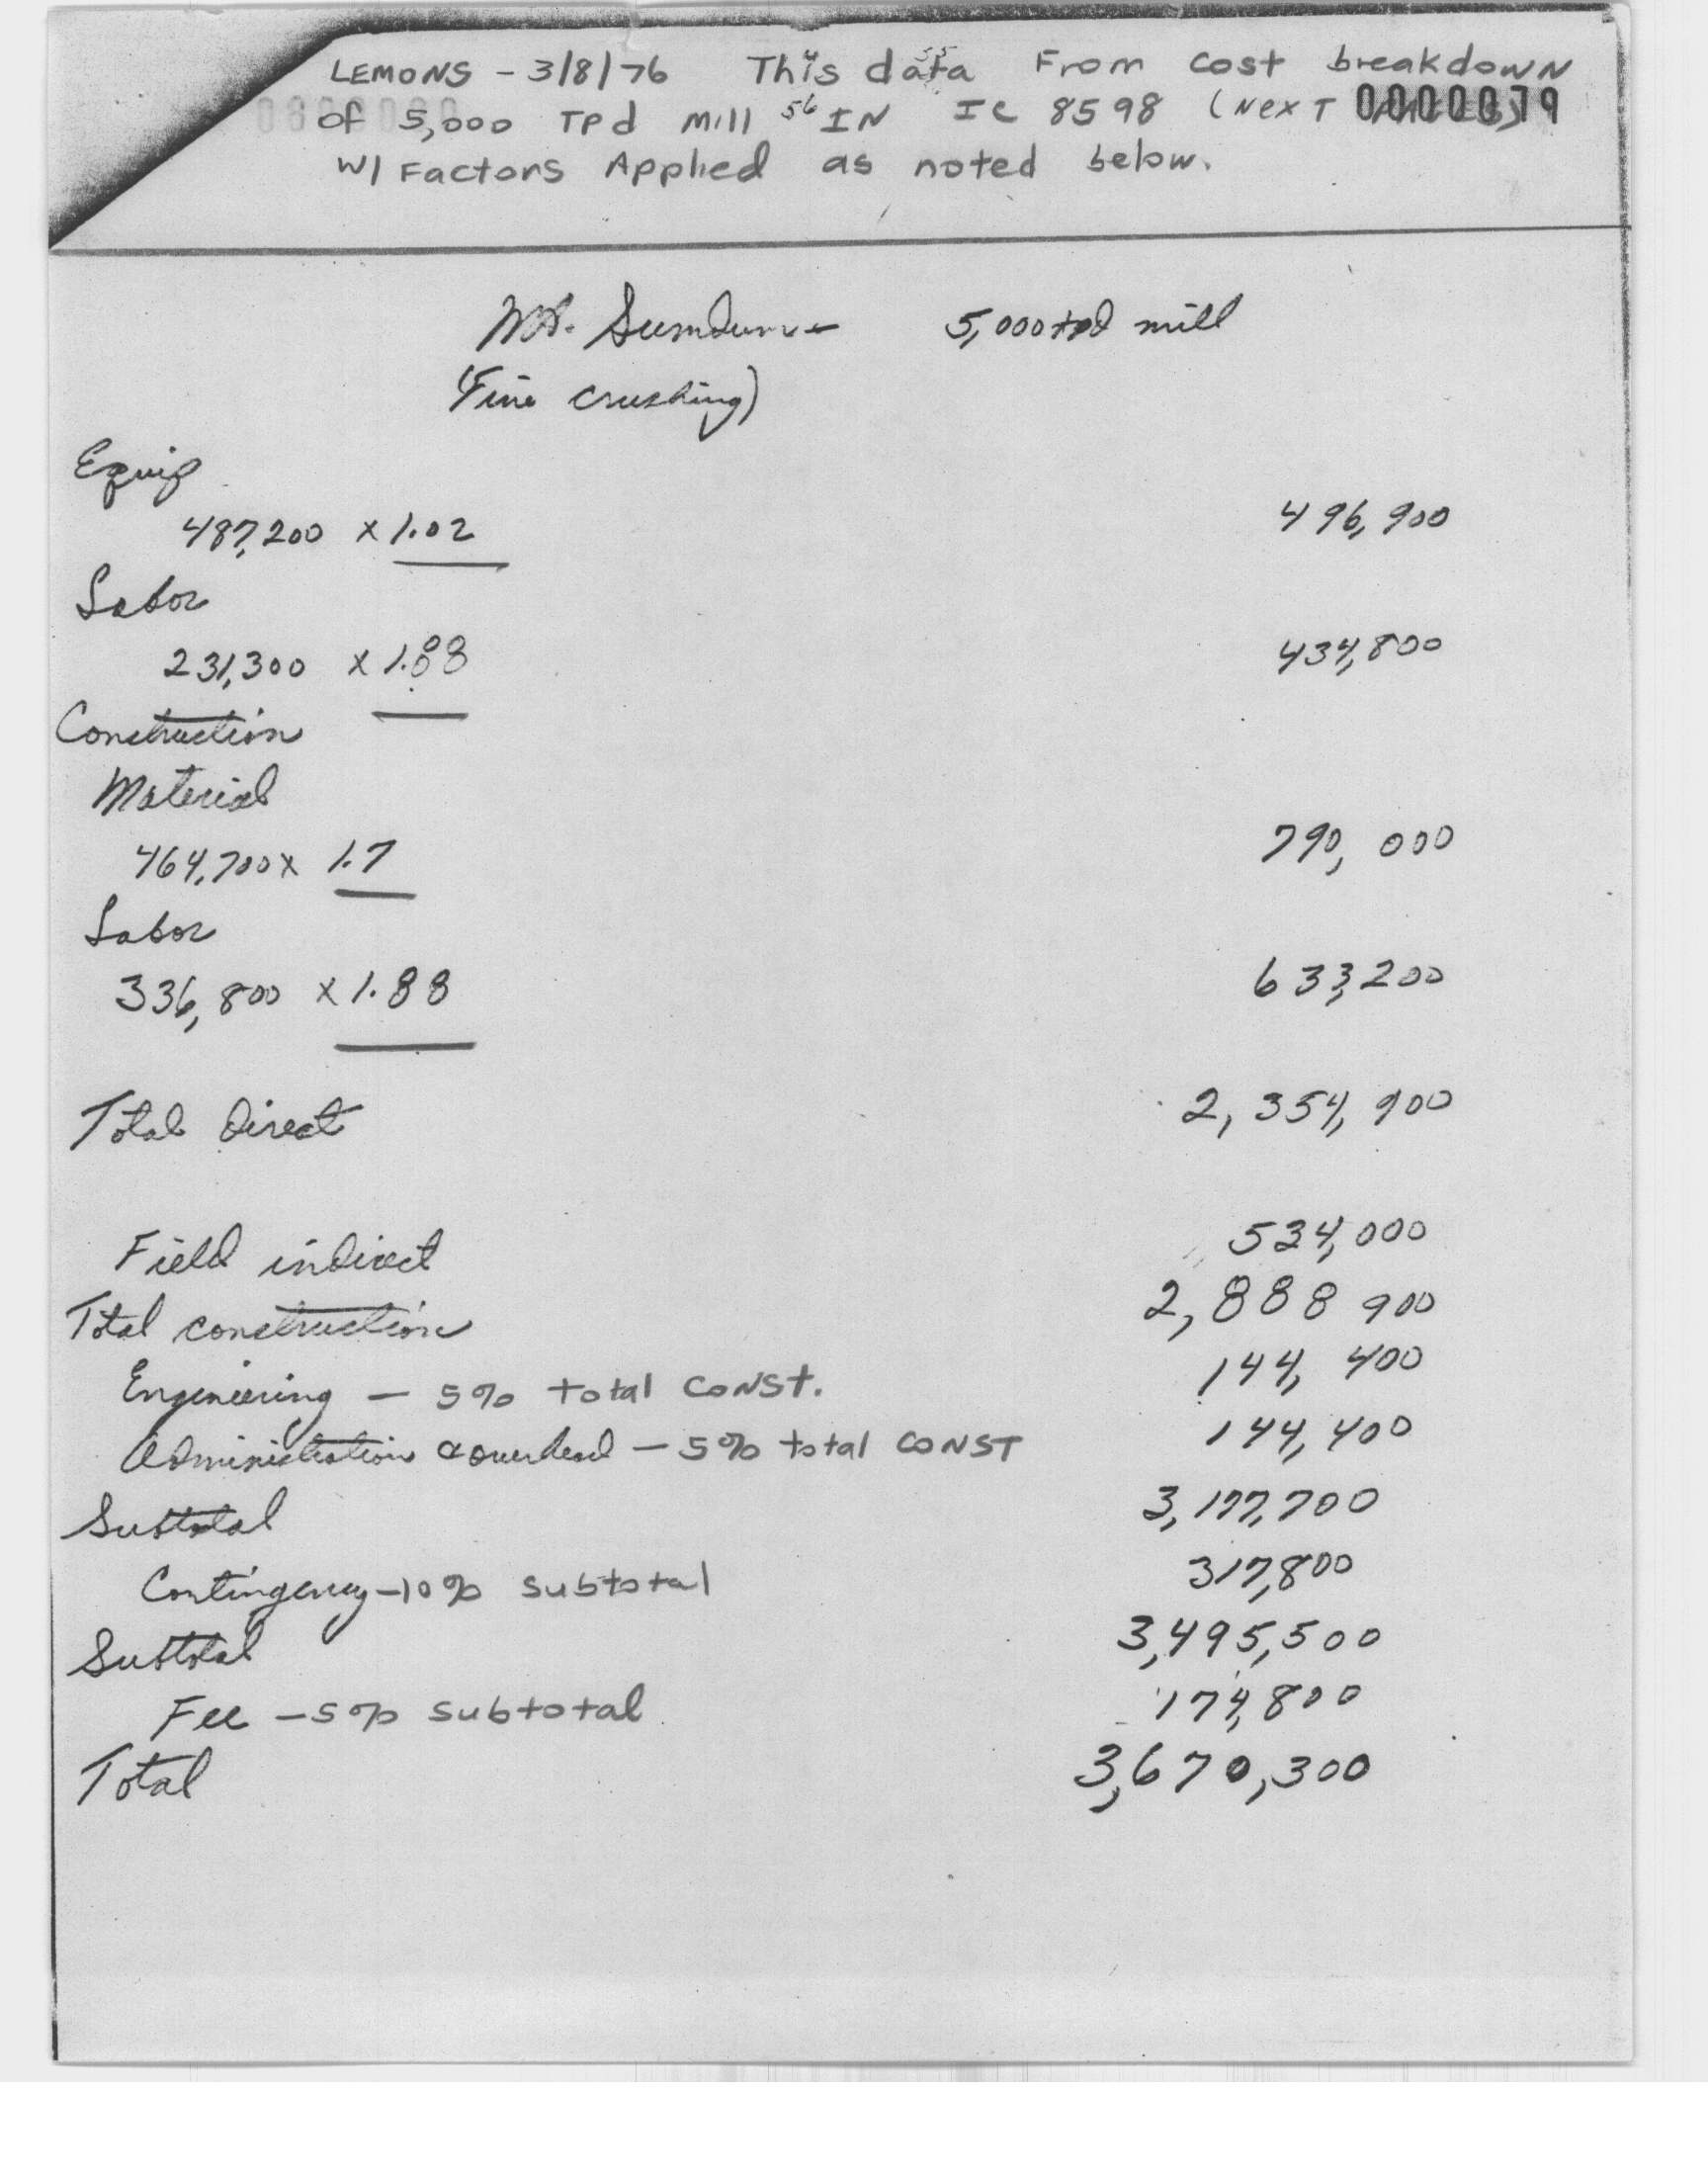 LEMONS - 3/8/76 This data From cost breakdown
of 5,000 Tpd Mill 56 IN IC 8598 (Next 0000079
W/ Factors Applied as noted below.
Mt. Sumdum 5,000 tpd mill
(Fine crushing)
Equip
487,200 x 1.02 496,900
Labor
231,300 x 1.88 434,800
Construction
Material
464,700 x 1.7 790,000
Labor
336,800 x 1.88 633,200
Total Direct 2,354,900
Field indirect 534,000
Total construction 2,888 900
Engineering - 5% total CONST. 144,400
Administration & overhead - 5% total CONST 144,400
Subtotal 3,177,700
Contingency - 10% subtotal 317,800
Subtotal 3,495,500
Fee - 5% subtotal 174,800
Total 3,670,300